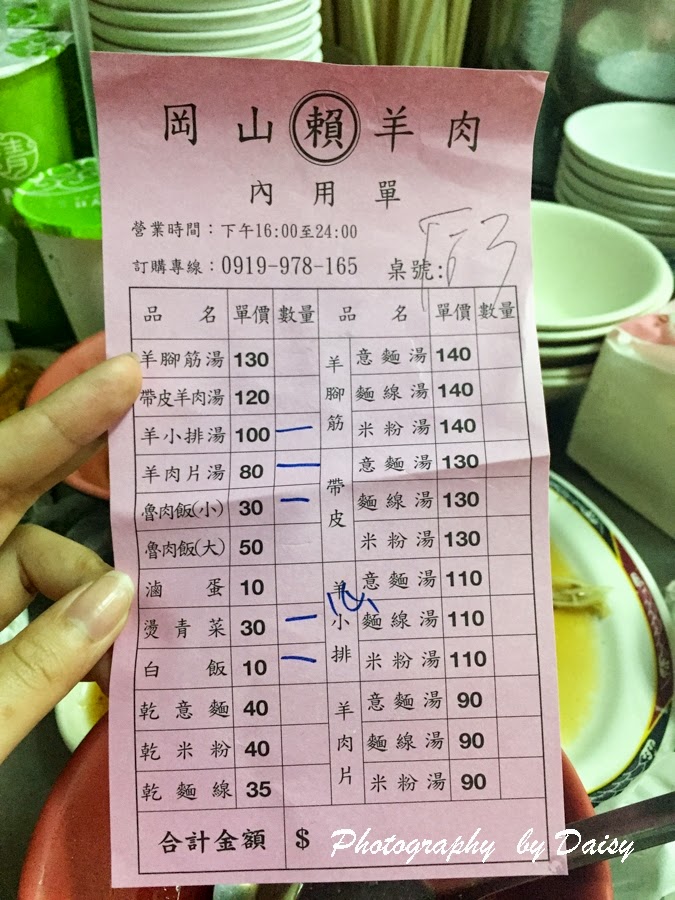 岡山賴羊肉
內用單
營業時間：下午16:00至24:00
訂購專線：0919-978-165 桌號:
品名 單價 數量 品名 單價 數量
羊腳筋湯 130 羊腳筋 意麵湯 140
帶皮羊肉湯 120 麵線湯 140
羊小排湯 100 一 米粉湯 140
羊肉片湯 80 一 帶皮 意麵湯 130
魯肉飯(小) 30 一 麵線湯 130
魯肉飯(大) 50 米粉湯 130
滷蛋 10 羊小排 意麵湯 110
燙青菜 30 一 麵線湯 110
白飯 10 一 米粉湯 110
乾意麵 40 羊肉片 意麵湯 90
乾米粉 40 麵線湯 90
乾麵線 35 米粉湯 90
合計金額 $
Photography by Daisy